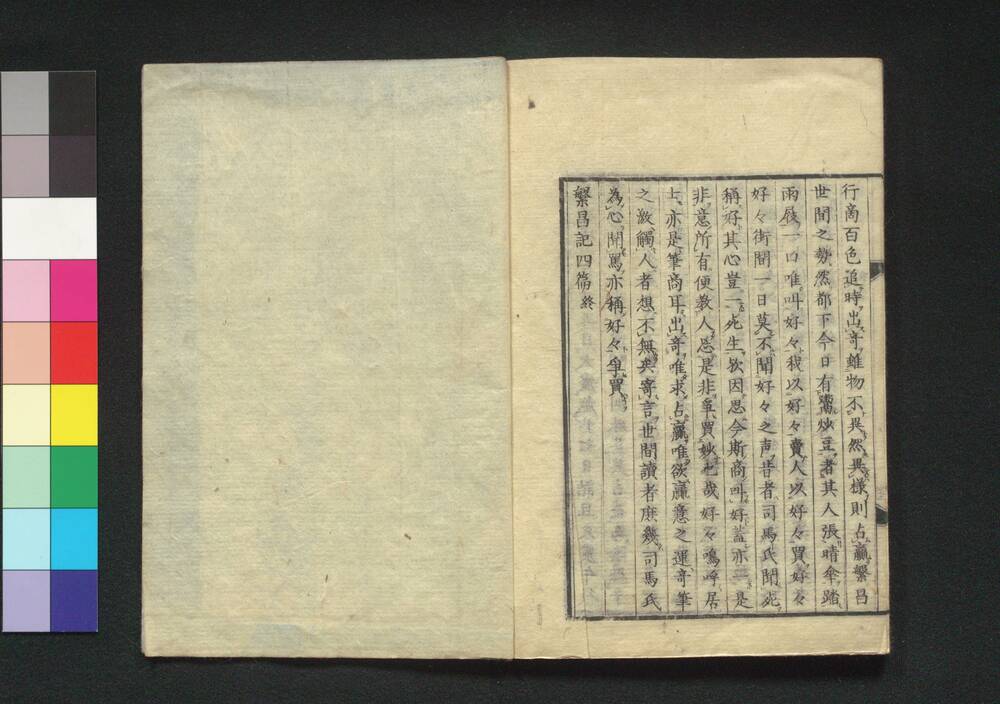 行商百色追時出奇雖物不異然異樣則占贏繁昌
世間之勢然都下今日有鬻炒豆者其人張晴傘踏
雨屐一口唯叫好々我以好々賣人以好々買好々
好々街間一日莫不聞好々之声昔者司馬氏聞死
稱好其心豈一死生歟因思今斯商叫好蓋亦一是
非意所有便教人忘是非争買妙也哉好々嗚呼居
士亦是筆商耳出奇唯求占贏唯欲贏意之運奇筆
之激觸人者想不無矣寄言世間讀者庶幾司馬氏
為心聞罵亦稱好々争買
繁昌記四篇終